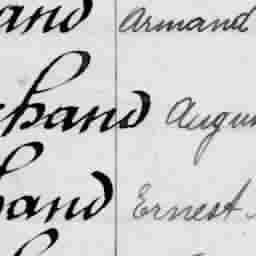 and Armand
chand Augus
hand Ernest